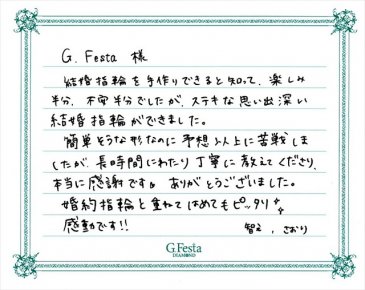 G. Festa 様
結婚指輪を手作りできると知って、楽しみ
半分、不安半分でしたが、ステキな思い出深い
結婚指輪ができました。
簡単そうな形なのに予想以上に苦戦しま
したが長時間にわたり丁寧に教えてくださり、
本当に感謝です。ありがとうございました。
婚約指輪と重ねてはめてもピッタリ
感動です!!
智之、さおり
G.Festa
DIAMOND